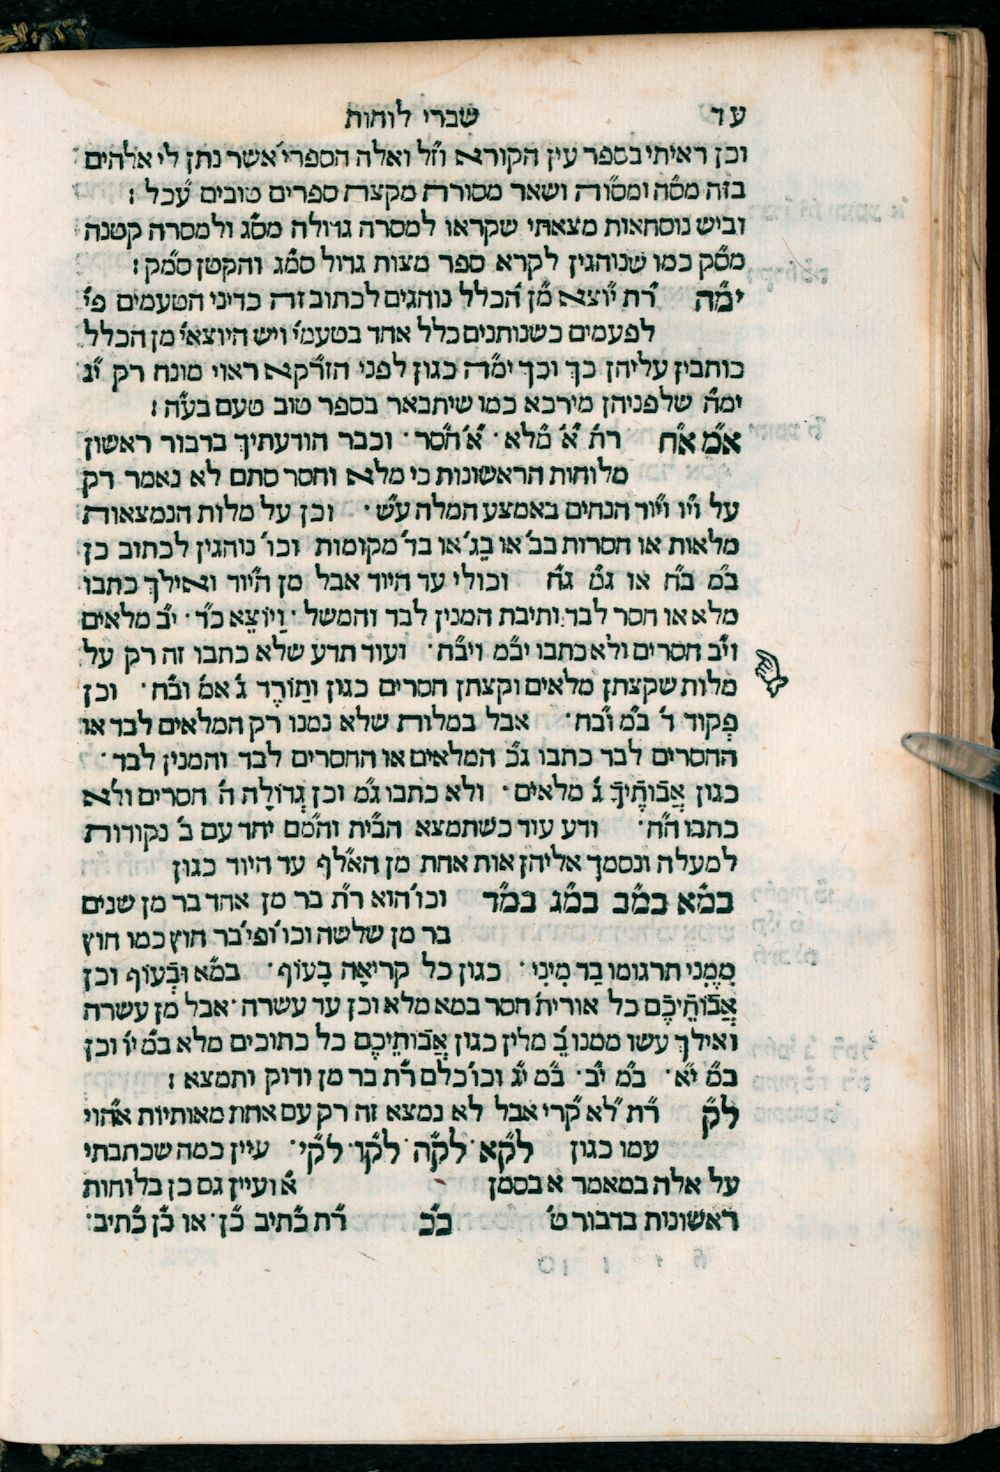 עד שברי לוחות
וכן ראיתי בספר עין הקורא וז״ל ואלה הספרי׳ אשר נתן לי אלהים
בזה מס״ה ומסורה ושאר מסורת מקצת ספרים טובים עכ״ל :
וביש נוסחאות מצאתי שקראו למסרה גדולה מס״ג ולמסרה קטנה
מס״ק כמו שנוהגין לקרא ספר מצות גדול סמ״ג והקטן סמ״ק :
ימ״ה ר״ת יוצא מן הכלל נוהגים לכתוב זה בדיני הטעמים פי׳
לפעמים כשנותנים כלל אחד בטעמי׳ ויש היוצאי׳ מן הכלל
כותבין עליהן כך וכך ימ״ה כגון לפני הזרקא ראוי מונח רק י״ג
ימ״ה שלפניהן מירכא כמו שיתבאר בספר טוב טעם בע״ה :
א״מ א״ח ר״ת א׳ מלא · א׳ חסר · וכבר הודעתיך בדבור ראשון
מלוחות הראשונות כי מלא וחסר סתם לא נאמר רק
על וי״ו ויו״ד הנחים באמצע המלה ע״ש · וכן על מלות הנמצאות
מלאות או חסרות בב׳ או בג׳ או בד׳ מקומות וכו׳ נוהגין לכתוב כן
ב״מ ב״ח או ג״מ ג״ח וכולי עד היוד אבל מן היו״ד ואילך כתבו
מלא או חסר לבד ותיבת המנין לבד והמשל · וַיוֹצֵא כ״ד · י״ב מלאים
וי״ב חסרים ולא כתבו יב״מ ויב״ח · ועוד תדע שלא כתבו זה רק על
מלות שקצתן מלאים וקצתן חסרים כגון וַתוֹרֶד ג׳ א״מ וב״ח · וכן
פְקוד ד׳ ב״מ וב״ח · אבל במלות שלא נמנו רק המלאים לבד או
החסרים לבד כתבו ג״כ המלאים או החסרים לבד והמנין לבד ·
כגון אֲבוֹתֶיךָ ג׳ מלאים · ולא כתבו ג״מ וכן גְדוֹלָה ה׳ חסרים ולא
כתבו ה״ח · ודע עוד כשתמצא הבי״ת והמ״ם יחד עם ב׳ נקודות
למעלה ונסמך אליהן אות אחת מן האל״ף עד היוד כגון
במ״א במ״ב במ״ג במ״ד וכו׳ הוא ר״ת בר מן אחד בר מן שנים
בר מן שלשה וכו׳ ופי׳ בר חוץ כמו חוץ
מִמֶנִי תרגומו בַר מִינִי · כגון כל קריאָה בָעוֹף · במ״א וּבָעוֹף וכן
אֲבוֹתֵיכֶם כל אורית׳ חסר במא מלא וכן עד עשרה · אבל מן עשרה
ואילך עשו ממנו ב׳ מלין כגון אֲבוֹתֵיכֶם כל כתובים מלא ב״מ י״ו וכן
ב״מ י״א · ב״מ י״ב · ב״מ י״ג וכו׳ כלם ר״ת בר מן ודוק ותמצא :
ל״ק ר״ת לא קרי אבל לא נמצא זה רק עם אחת מאותיות אהו״י
עמו כגון לק״א · לק״ה · לק״ו · לק״י · עיין במה שכתבתי
על אלה במאמר א בסמן א׳ ועיין גם כן בלוחות
ראשונות בדבור ט׳ כ״כ ר״ת כתיב כן · או כן כתיב ·